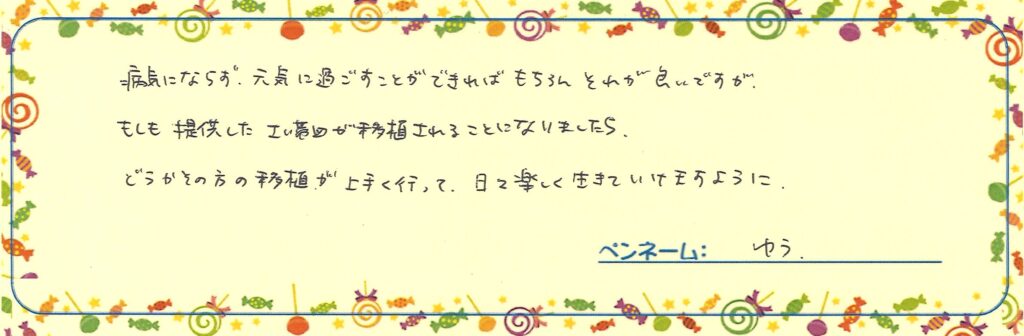 病気にならず、元気に過ごすことができればもちろんそれが良いですが、
もしも提供したさい帯血が移植されることになりましたら、
どうかその方の移植が上手く行って、日々楽しく生きていけますように。
ペンネーム： ゆう.